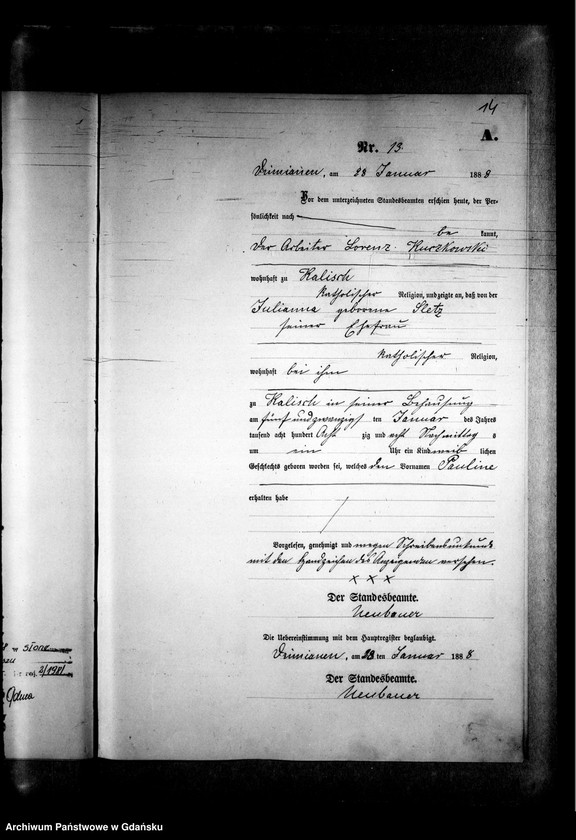 14
A.
Nr. 13.
Dzimianen, am 28 Januar 1888
Vor dem unterzeichneten Standesbeamten erschien heute, der Per-
sönlichkeit nach
be kannt,
der Arbeiter Lorenz Kuczkowski
wohnhaft zu Kalisch
katholischer Religion, und zeigte an, daß von der
Julianna geborene Sletz
seiner Ehefrau
katholischer Religion,
wohnhaft bei ihm
zu Kalisch in seiner Behausung
am fünf und zwanzigst ten Januar des Jahres
tausend acht hundert Acht zig und acht Nachmittag s
um ein Uhr ein Kind weib lichen
Geschlechts geboren worden sei, welches den Vornamen Pauline
erhalten habe
Vorgelesen, genehmigt und wegen Schreibensunkunde
mit den Handzeichen des Anzeigenden versehen.
x x x
Der Standesbeamte.
Neubauer
Die Uebereinstimmung mit dem Hauptregister beglaubigt.
Dzimianen, am 28 ten Januar 1888
Der Standesbeamte.
Neubauer
w
2/1981
Archiwum Państwowe w Gdańsku